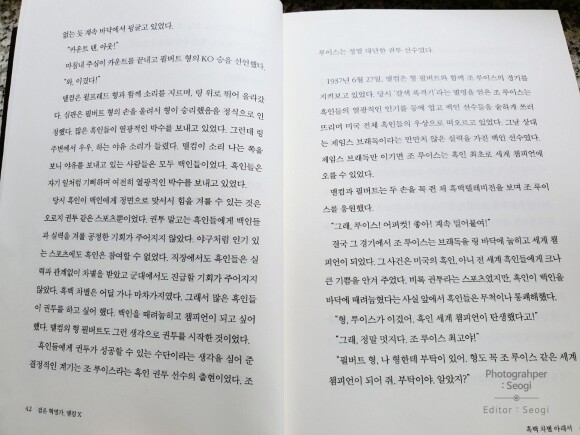 없는 듯 계속 바닥에서 뒹굴고 있었다.
"카운트 텐, 아웃!"
마침내 주심이 카운트를 끝내고 필버트 형의 KO 승을 선언했다.
"와, 이겼다!"
맬컴은 윌프레드 형과 함께 소리를 지르며, 링 위로 뛰어 올라갔
다. 심판은 필버트 형의 손을 올려서 형이 승리했음을 정식으로 인
정했다. 많은 흑인들이 열광적인 박수를 보내고 있었다. 그런데 링
주변에서 우우, 하는 야유 소리가 들렸다. 맬컴이 소리 나는 쪽을
보니 야유를 보내고 있는 사람들은 모두 백인들이었다. 흑인들은
자기 일처럼 기뻐하며 여전히 열광적인 박수를 보내고 있었다.
당시 흑인이 백인에게 정면으로 맞서서 힘을 겨룰 수 있는 것은
오로지 권투 같은 스포츠뿐이었다. 권투 말고는 흑인들에게 백인들
과 실력을 겨룰 공정한 기회가 주어지지 않았다. 야구처럼 인기 있
는 스포츠에도 흑인은 참여할 수 없었다. 직장에서도 흑인들은 실
력과 관계없이 차별을 받았고 군대에서도 진급할 기회가 주어지지
않았다. 흑백 차별은 어딜 가나 마찬가지였다. 그래서 많은 흑인들
이 권투를 하고 싶어 했다. 백인을 때려눕히고 챔피언이 되고 싶어
했다. 맬컴의 형 필버트도 그런 생각으로 권투를 시작한 것이었다.
흑인들에게 권투가 성공할 수 있는 수단이라는 생각을 심어 준
결정적인 계기는 조 루이스라는 흑인 권투 선수의 출현이었다. 조
42 검은 혁명가, 맬컴 X
루이스는 정말 대단한 권투 선수였다.
1937년 6월 27일, 맬컴은 형 필버트와 함께 조 루이스의 경기를
지켜보고 있었다. 당시 '갈색 폭격기'라는 별명을 얻은 조 루이스는
흑인들의 열광적인 인기를 등에 업고 백인 선수들을 숱하게 쓰러
뜨리며 미국 전체 흑인들의 우상으로 떠오르고 있었다. 그날 상대
는 제임스 브래독이라는 만만치 않은 실력을 가진 백인 선수였다.
제임스 브래독만 이기면 조 루이스는 흑인 최초로 세계 챔피언에
오를 수 있었다.
맬컴과 필버트는 두 손을 꼭 쥔 채 흑백텔레비전을 보며 조 루이
스를 응원했다.
"그래, 루이스! 어퍼컷! 좋아! 계속 밀어붙여!"
결국 그 경기에서 조 루이스는 브래독을 링 바닥에 눕히고 세계 챔
피언이 되었다. 그 사건은 미국의 흑인, 아니 전 세계 흑인들에게 크나
큰 기쁨을 안겨 주었다. 비록 권투라는 스포츠였지만, 흑인이 백인을
바닥에 때려눕혔다는 사실 앞에서 흑인들은 무척이나 통쾌해했다.
"형, 루이스가 이겼어, 흑인 세계 챔피언이 탄생했다고!"
"그래, 정말 멋지다. 조 루이스 최고야!"
"필버트 형, 나 형한테 부탁이 있어. 형도 꼭 조 루이스 같은 세계
챔피언이 되어 줘, 부탁이야, 알았지?"
흑백 차별 아래서
Photograhper
: Seogi
Editor : Seogi